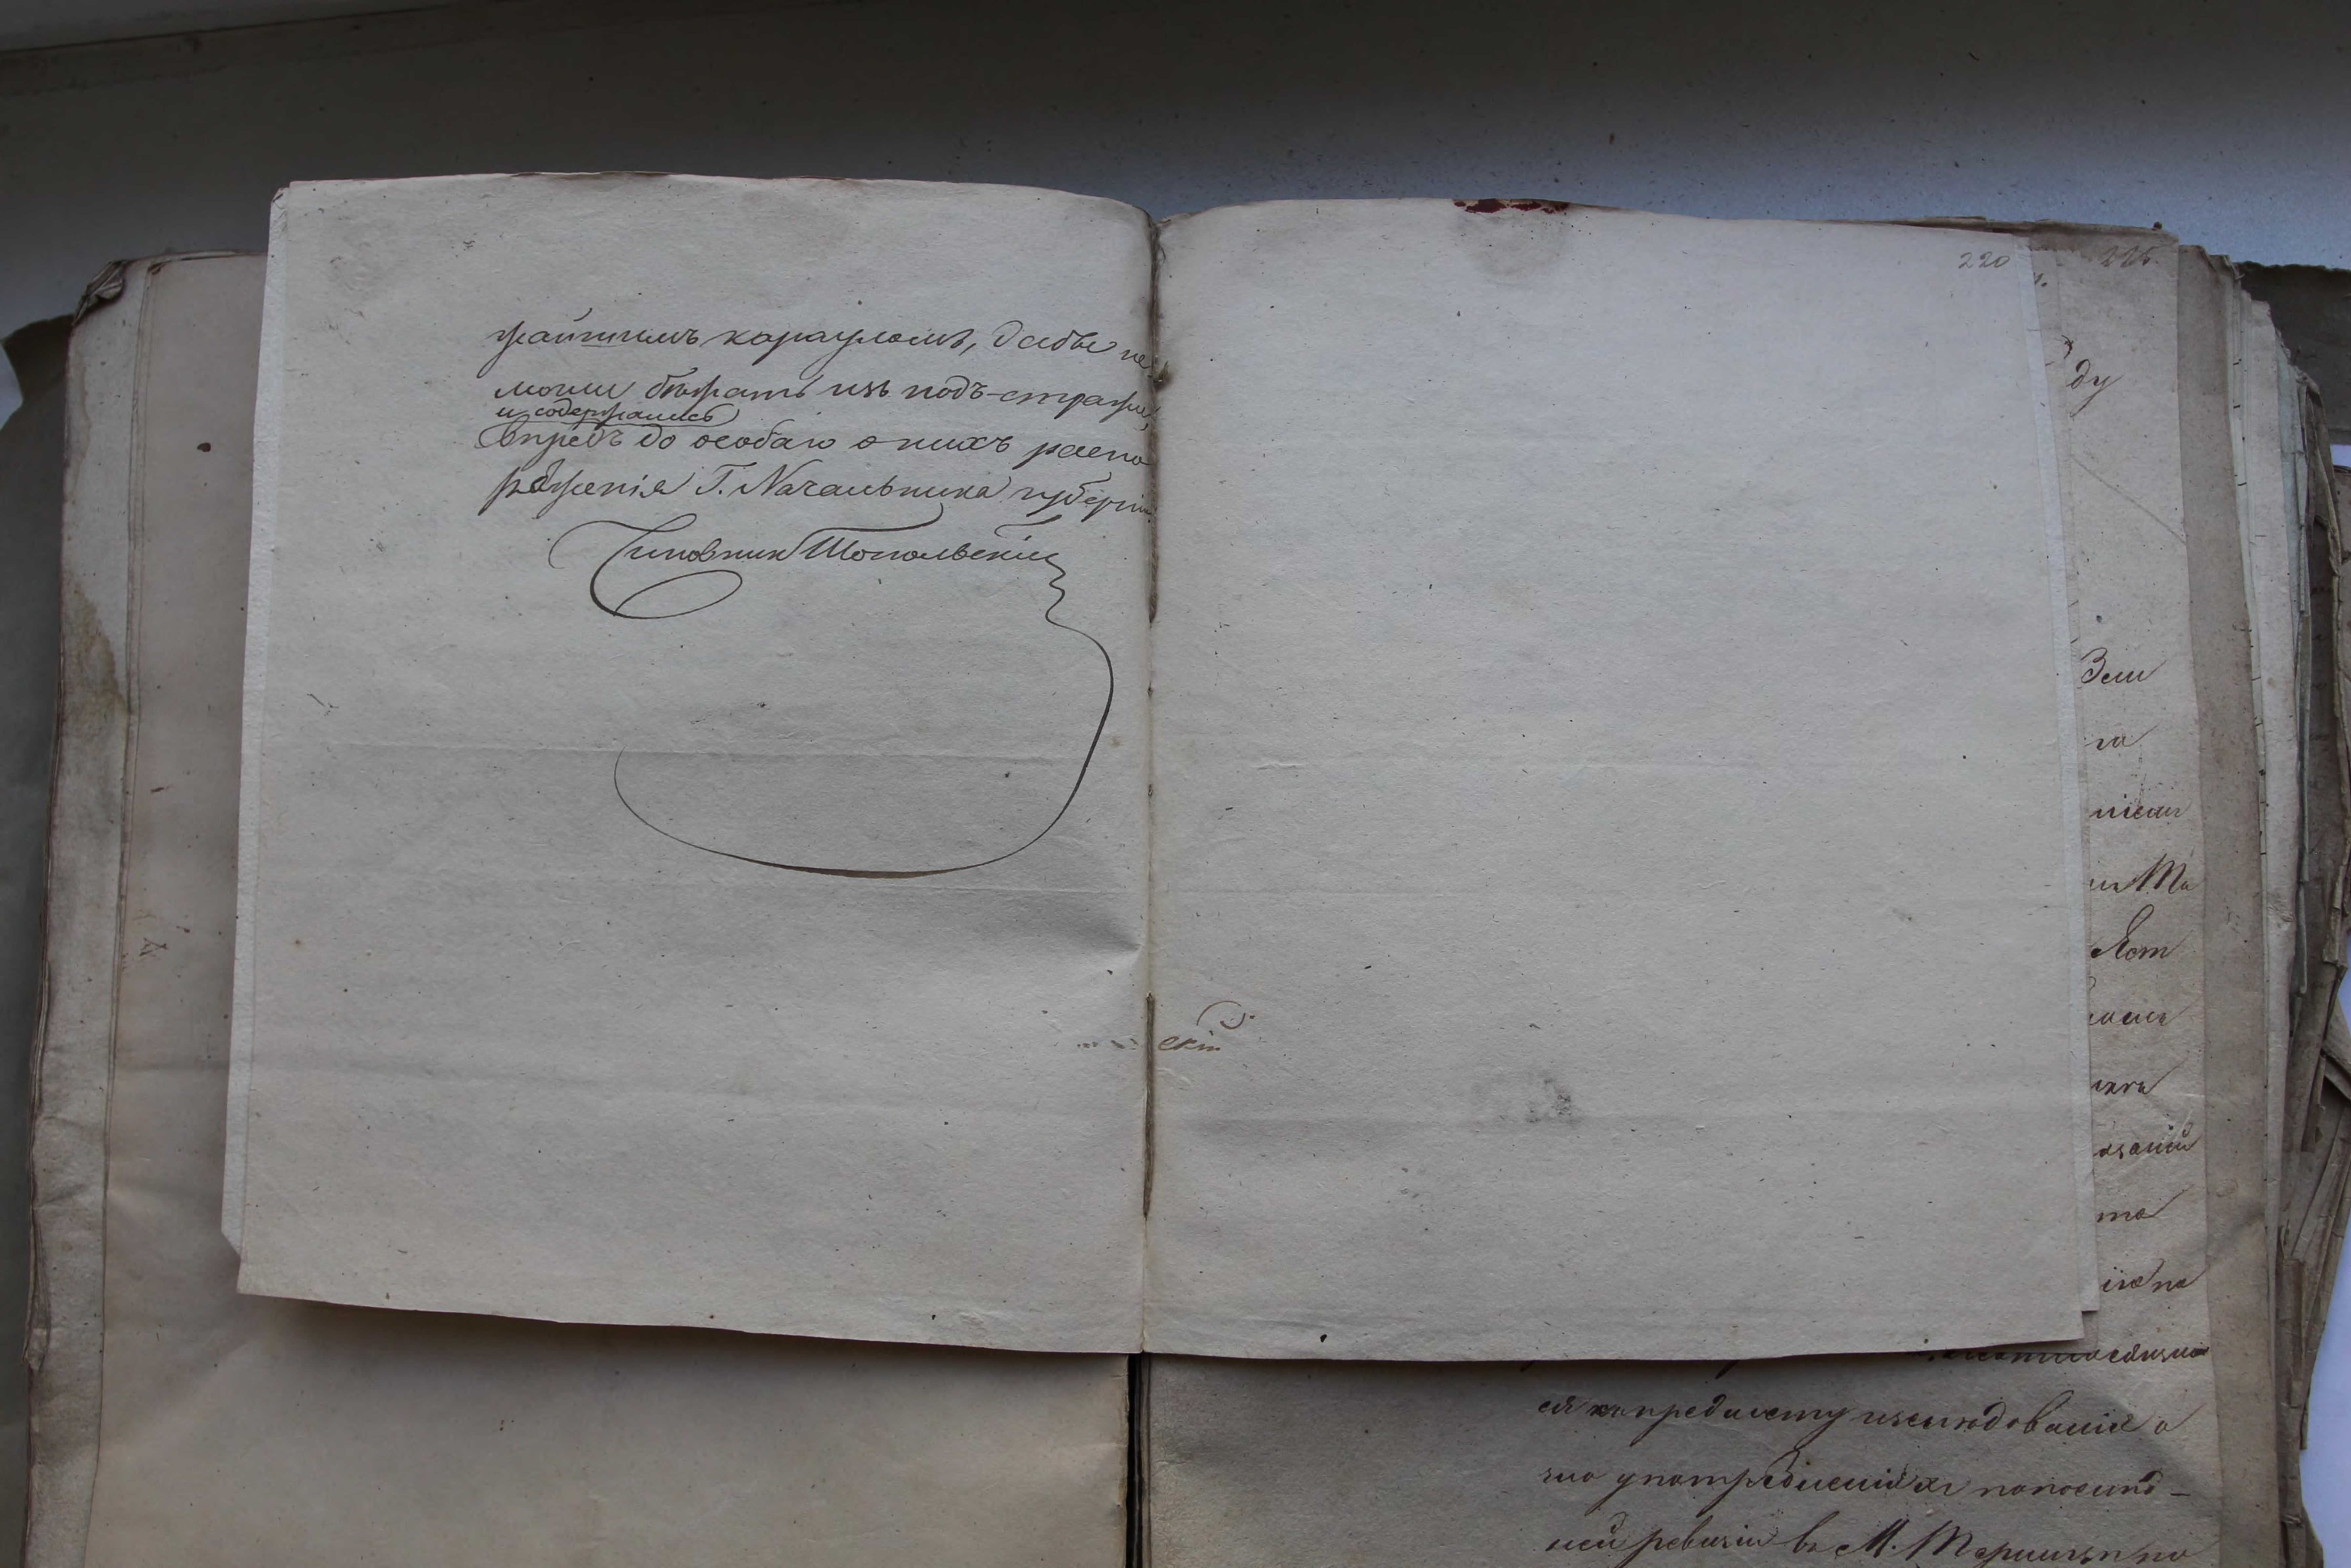 жайшимъ карауломъ, дабы не
могли бѣжать изъ подъ-стражи,
и содержались
впредь до особаго о нихъ распо
ряженія Г. Начальника губерніи.
Чиновник Топольскій
скій
220
225
ду
Зем
га
нісмъ
Ма
занію
та
на
ся къ предмету изслѣдованія о
злоупотребленіяхъ по послѣд-
ней ревизіи въ М. по